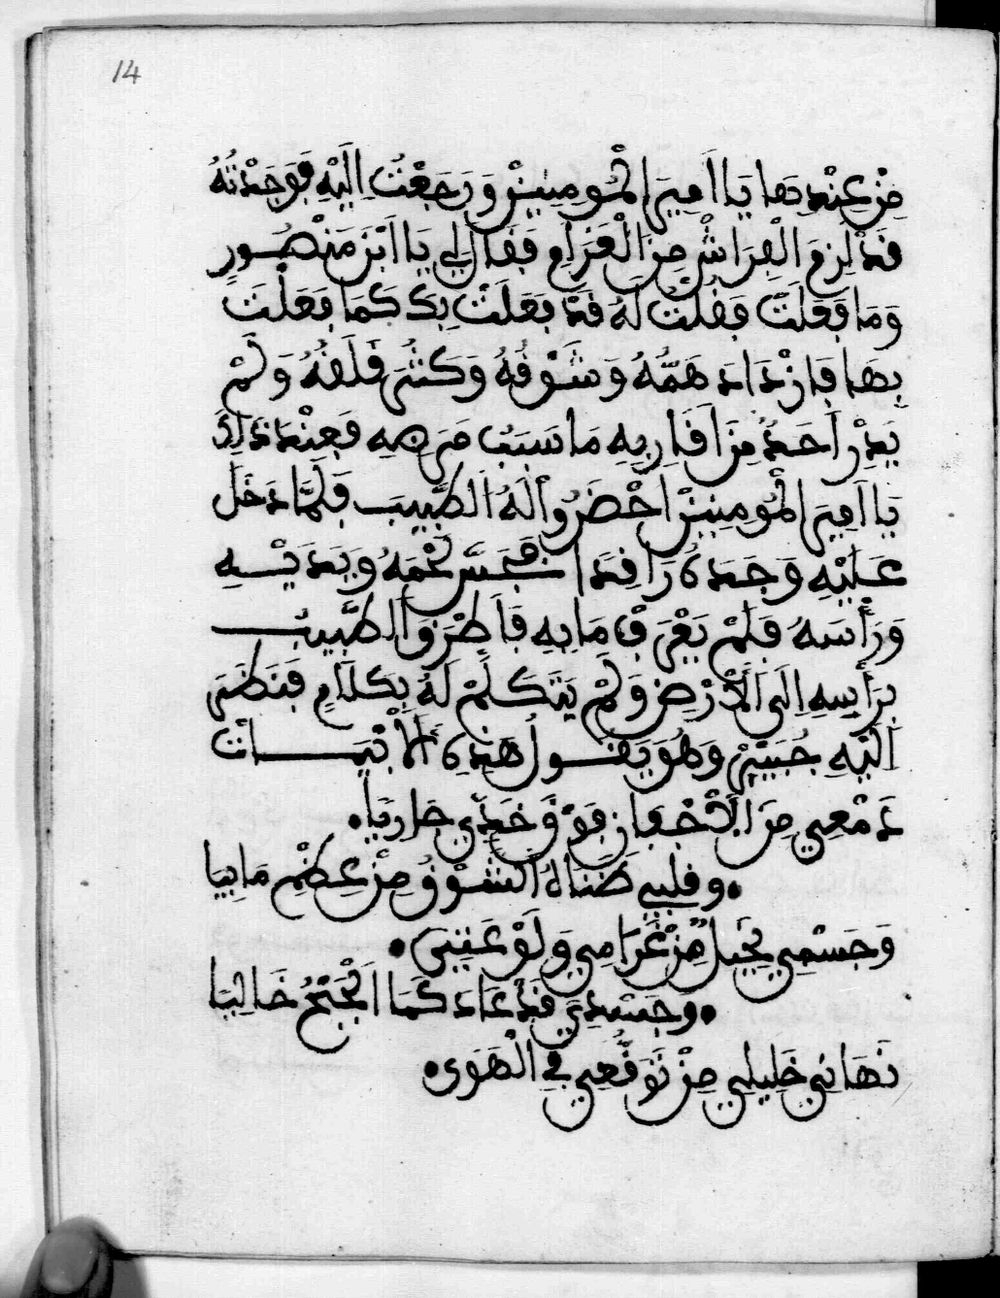 14
مِنْ عِنْدِهَا يَا اَمِيرَ الْمُومِنِينَ وَرَجَعْتُ اِلَيْهِ فَوَجَدْتُهُ
قَدْ لَزِمَ الْفِرَاشْ مِنَ الْغَرَامِ فَقَالَ لِي يَا ابْنَ مَنْصُورٍ
وَمَا فَعَلَتْ فَقُلْتُ لَهُ قَدْ فَعَلَتْ بِكَ كَمَا فَعَلْتَ
بِهَا فَازْدَادَ هَمُّهُ وَشَوْقُهُ وَكَثُرَ قَلَقُهُ وَلَمْ
يَدْرِ اَحَدٌ مِنَ اَقَارِبِهِ مَا سَبَبُ مَرَضِهِ فَعِنْدَ ذَالِكَ
يَا اَمِيرَ الْمُومِنِينَ اَحْضَرُواْ لَهُ الطَّبِيبَ فَلَمَّا دَخَلَ
عَلَيْهِ وَجَدَهُ رَاقِدًا فَجَسَّ لَحْمَهُ وَيَدَيْهِ
وَرَأْسَهُ فَلَمْ يَعْرِفْ مَا بِهِ فَاَطْرَقَ الطَّبِيبُ
بِرَأْسِهِ اِلَى الْاَرْضِ وَلَمْ يَتَكَلَّمْ لَهُ بِكَلَامٍ فَنَظَرَ
اِلَيْهِ جُبَيْرٌ وَهُوَ يَقُولُ هَذِهِ الْاَبْيَاتْ
دَمْعِي مِنَ الْاَجْفَانِ فَوْقَ خَدِّي جَارِيَا
وَقَلْبِي ضَنَاهُ الشَّوْقُ مِنْ عِظْمِ مَا بِيَا
وَجَسْمِي نَحِيلٌ مِنْ غَرَامِي وَلَوْعَتِي
وَجَسَدِي قَدْ عَادَ كَمَا الْجُنْحُ خَالِيَا
نَهَانِي خَلِيلِي مِنْ تَوَقُّعِي فِي الْهَوَى